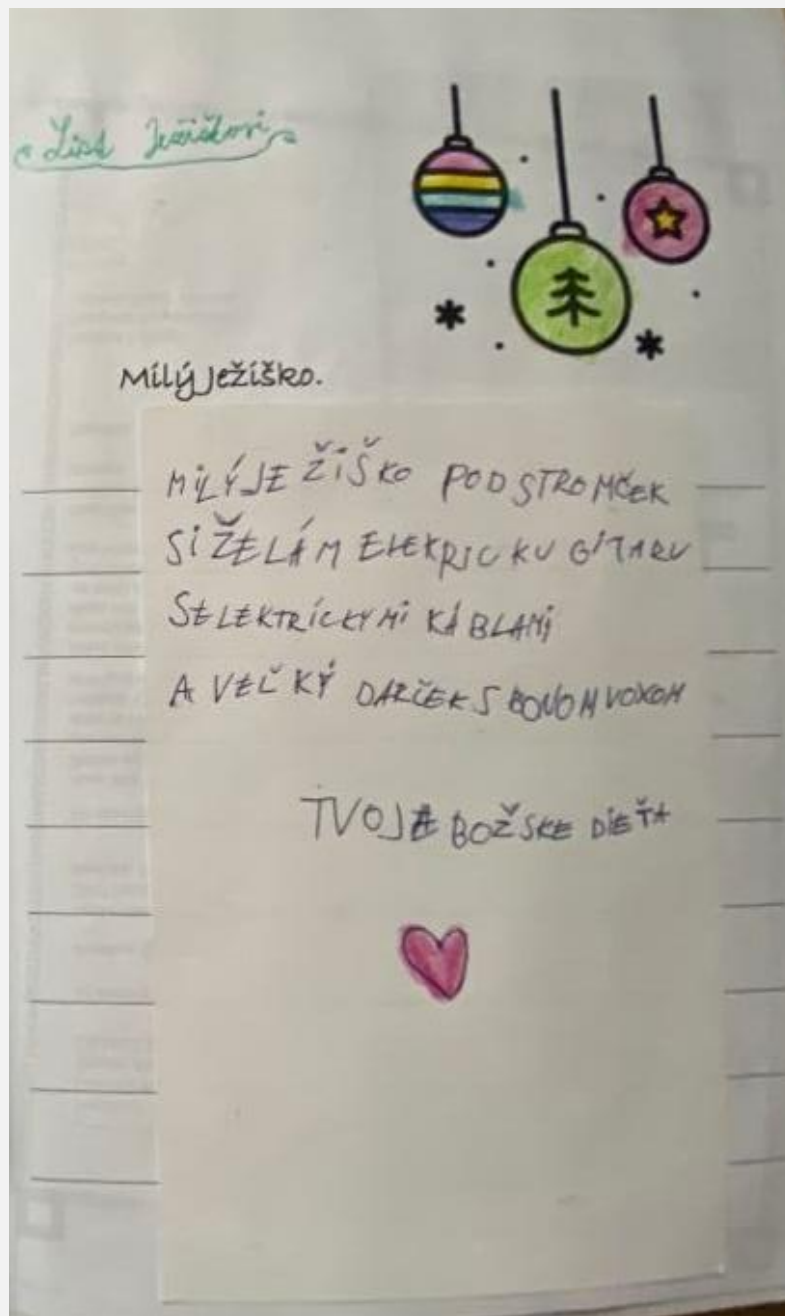 List Ježiškovi
Milý Ježiško.
MILÝ JEŽIŠKO POD STROMČEK
SI ŽELÁM ELEKRICKU GITARU
S ELEKTRÍCKYMI KÁBLAMI
A VEĽKÝ DARČEK S BONOM VOXOM
TVOJE BOŽSKE DIEŤA